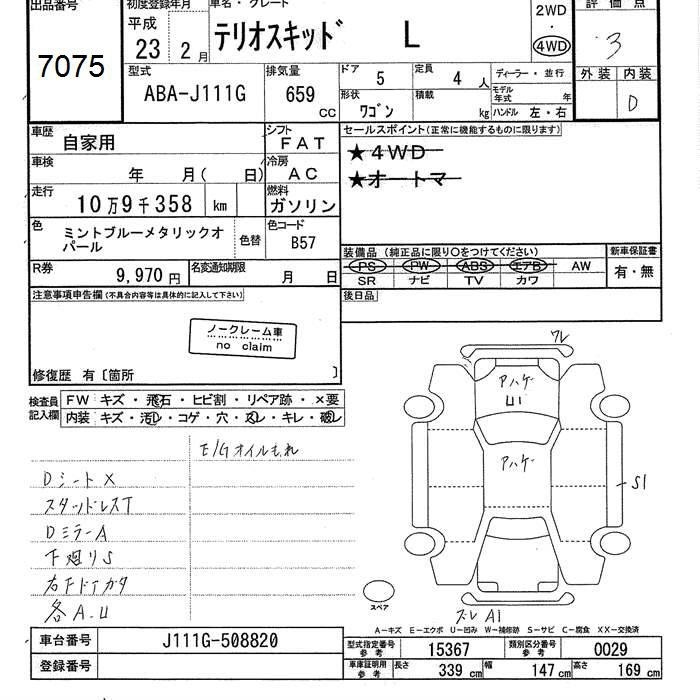 出品番号
7075
初度登録年月
平成
23 2月
車名・グレード
テリオスキッド L
2WD
・
4WD
評価点
3
外装 内装
D
型式
ABA-J111G
排気量
659 CC
ドア
5
定員
4 人
形状
ワゴン
積載
kg
ディーラー・並行
モデル年式 年
ハンドル 左・右
車歴
自家用
シフト
FAT
車検
年 月( 日)
冷房
AC
走行
10万9千358 km
燃料
ガソリン
色
ミントブルーメタリックオパール
色替
色コード
B57
R券
9,970 円
名変通知期限
月 日
セールスポイント(正常に機能するものに限ります)
★4WD
★オートマ
装備品(純正品に限り○をつけてください)
PS PW ABS エアB AW
SR ナビ TV カワ
新車保証書
有・無
後日品
注意事項申告欄(不具合内容等は具体的に記入して下さい)
ノークレーム車
no claim
修復歴 有〔箇所 〕
検査員記入欄
FW キズ・飛石・ヒビ割・リペア跡・×要
内装 キズ・汚レ・コゲ・穴・スレ・キレ・破レ
E/Gオイルもれ
Dシート×
スタッドレスT
DミラーA
下廻りS
右Fドアガタ
各A.U
ワレ
アハゲ
U1
アハゲ
S1
スペア
ズレ A1
A－キズ E－エクボ U－凹み W－補修跡 S－サビ C－腐食 XX－交換済
車台番号 J111G-508820
登録番号
型式指定番号参考 15367
類別区分番号参考 0029
車庫証明用参考 長さ 339 cm 幅 147 cm 高さ 169 cm